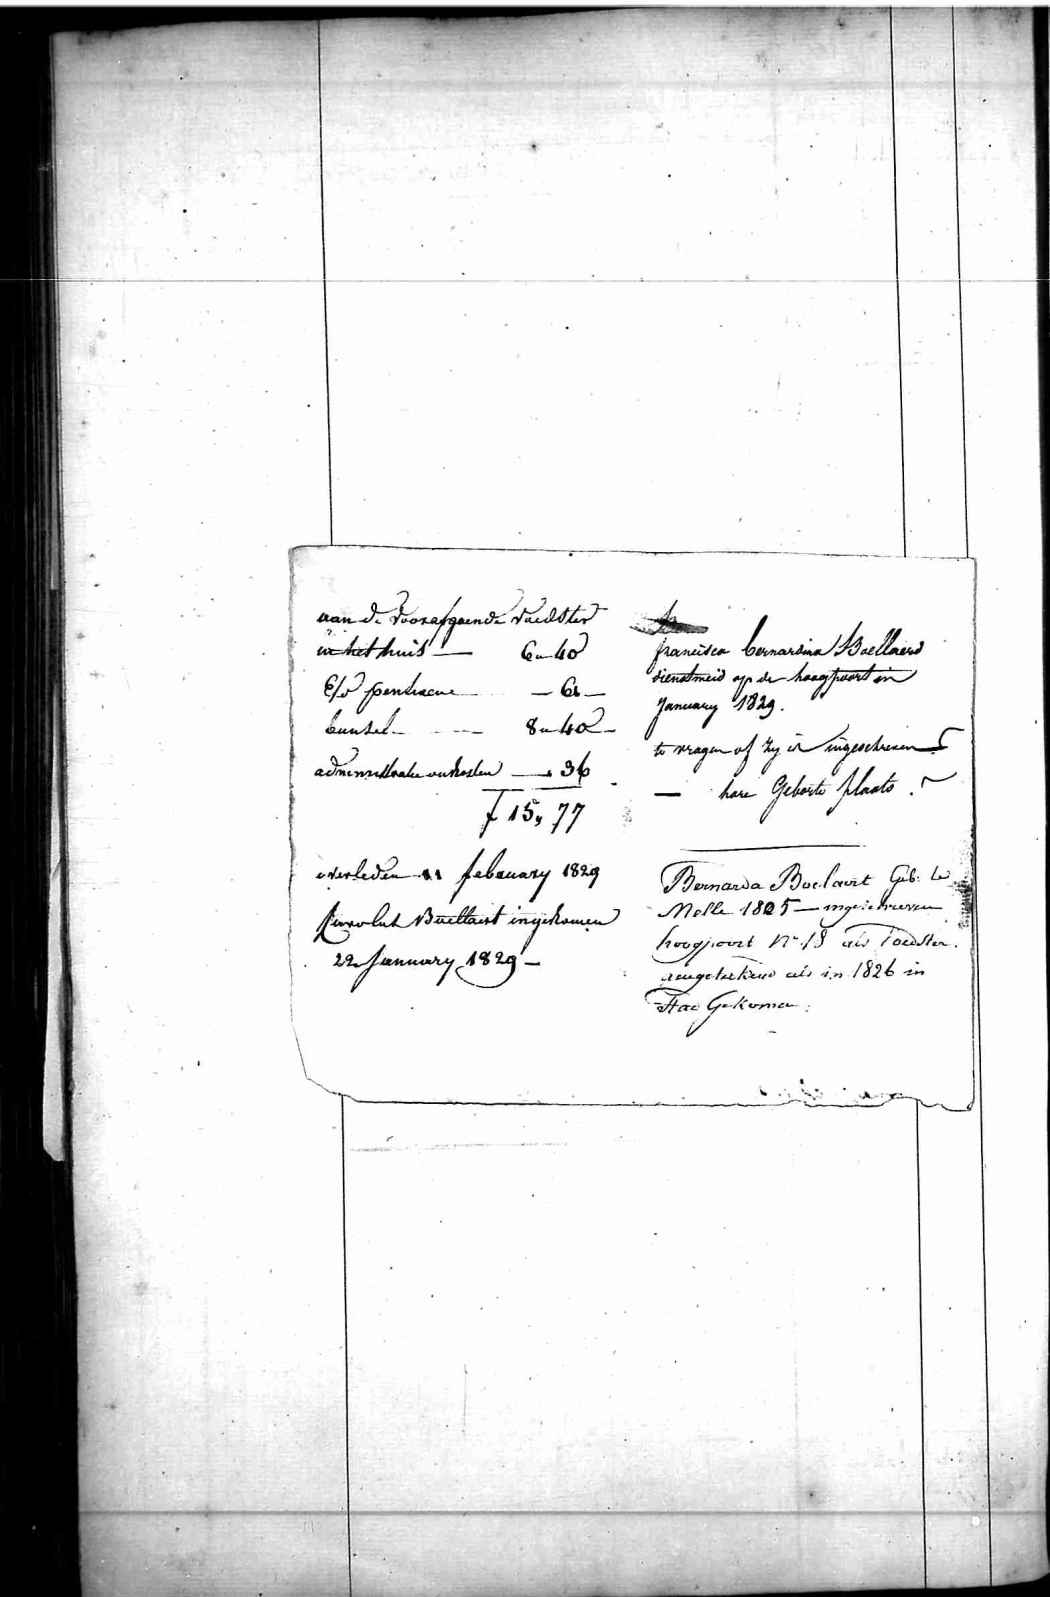 aan de voorafgaende voedster
in het huis — 6 „ 40
— 61 —
bunsel — 8 „ 40 —
administratie onkosten — „ 36
f 15 „ 77
overleden 11 february 1829
Carolus Buellaert ingekomen
22 January 1829 —
francisca bernardina Boellaerd
dienstmeid op de hoogpoort in
January 1829.
te vragen of zy is ingeschreven ?
— hare Geborte plaats . ?
Bernarda Boelaert Geb. te
Melle 1805 — ingeschreven
hoogpoort N° 18 als voedster.
aengetekend als in 1826 in
Stad Gekomen.